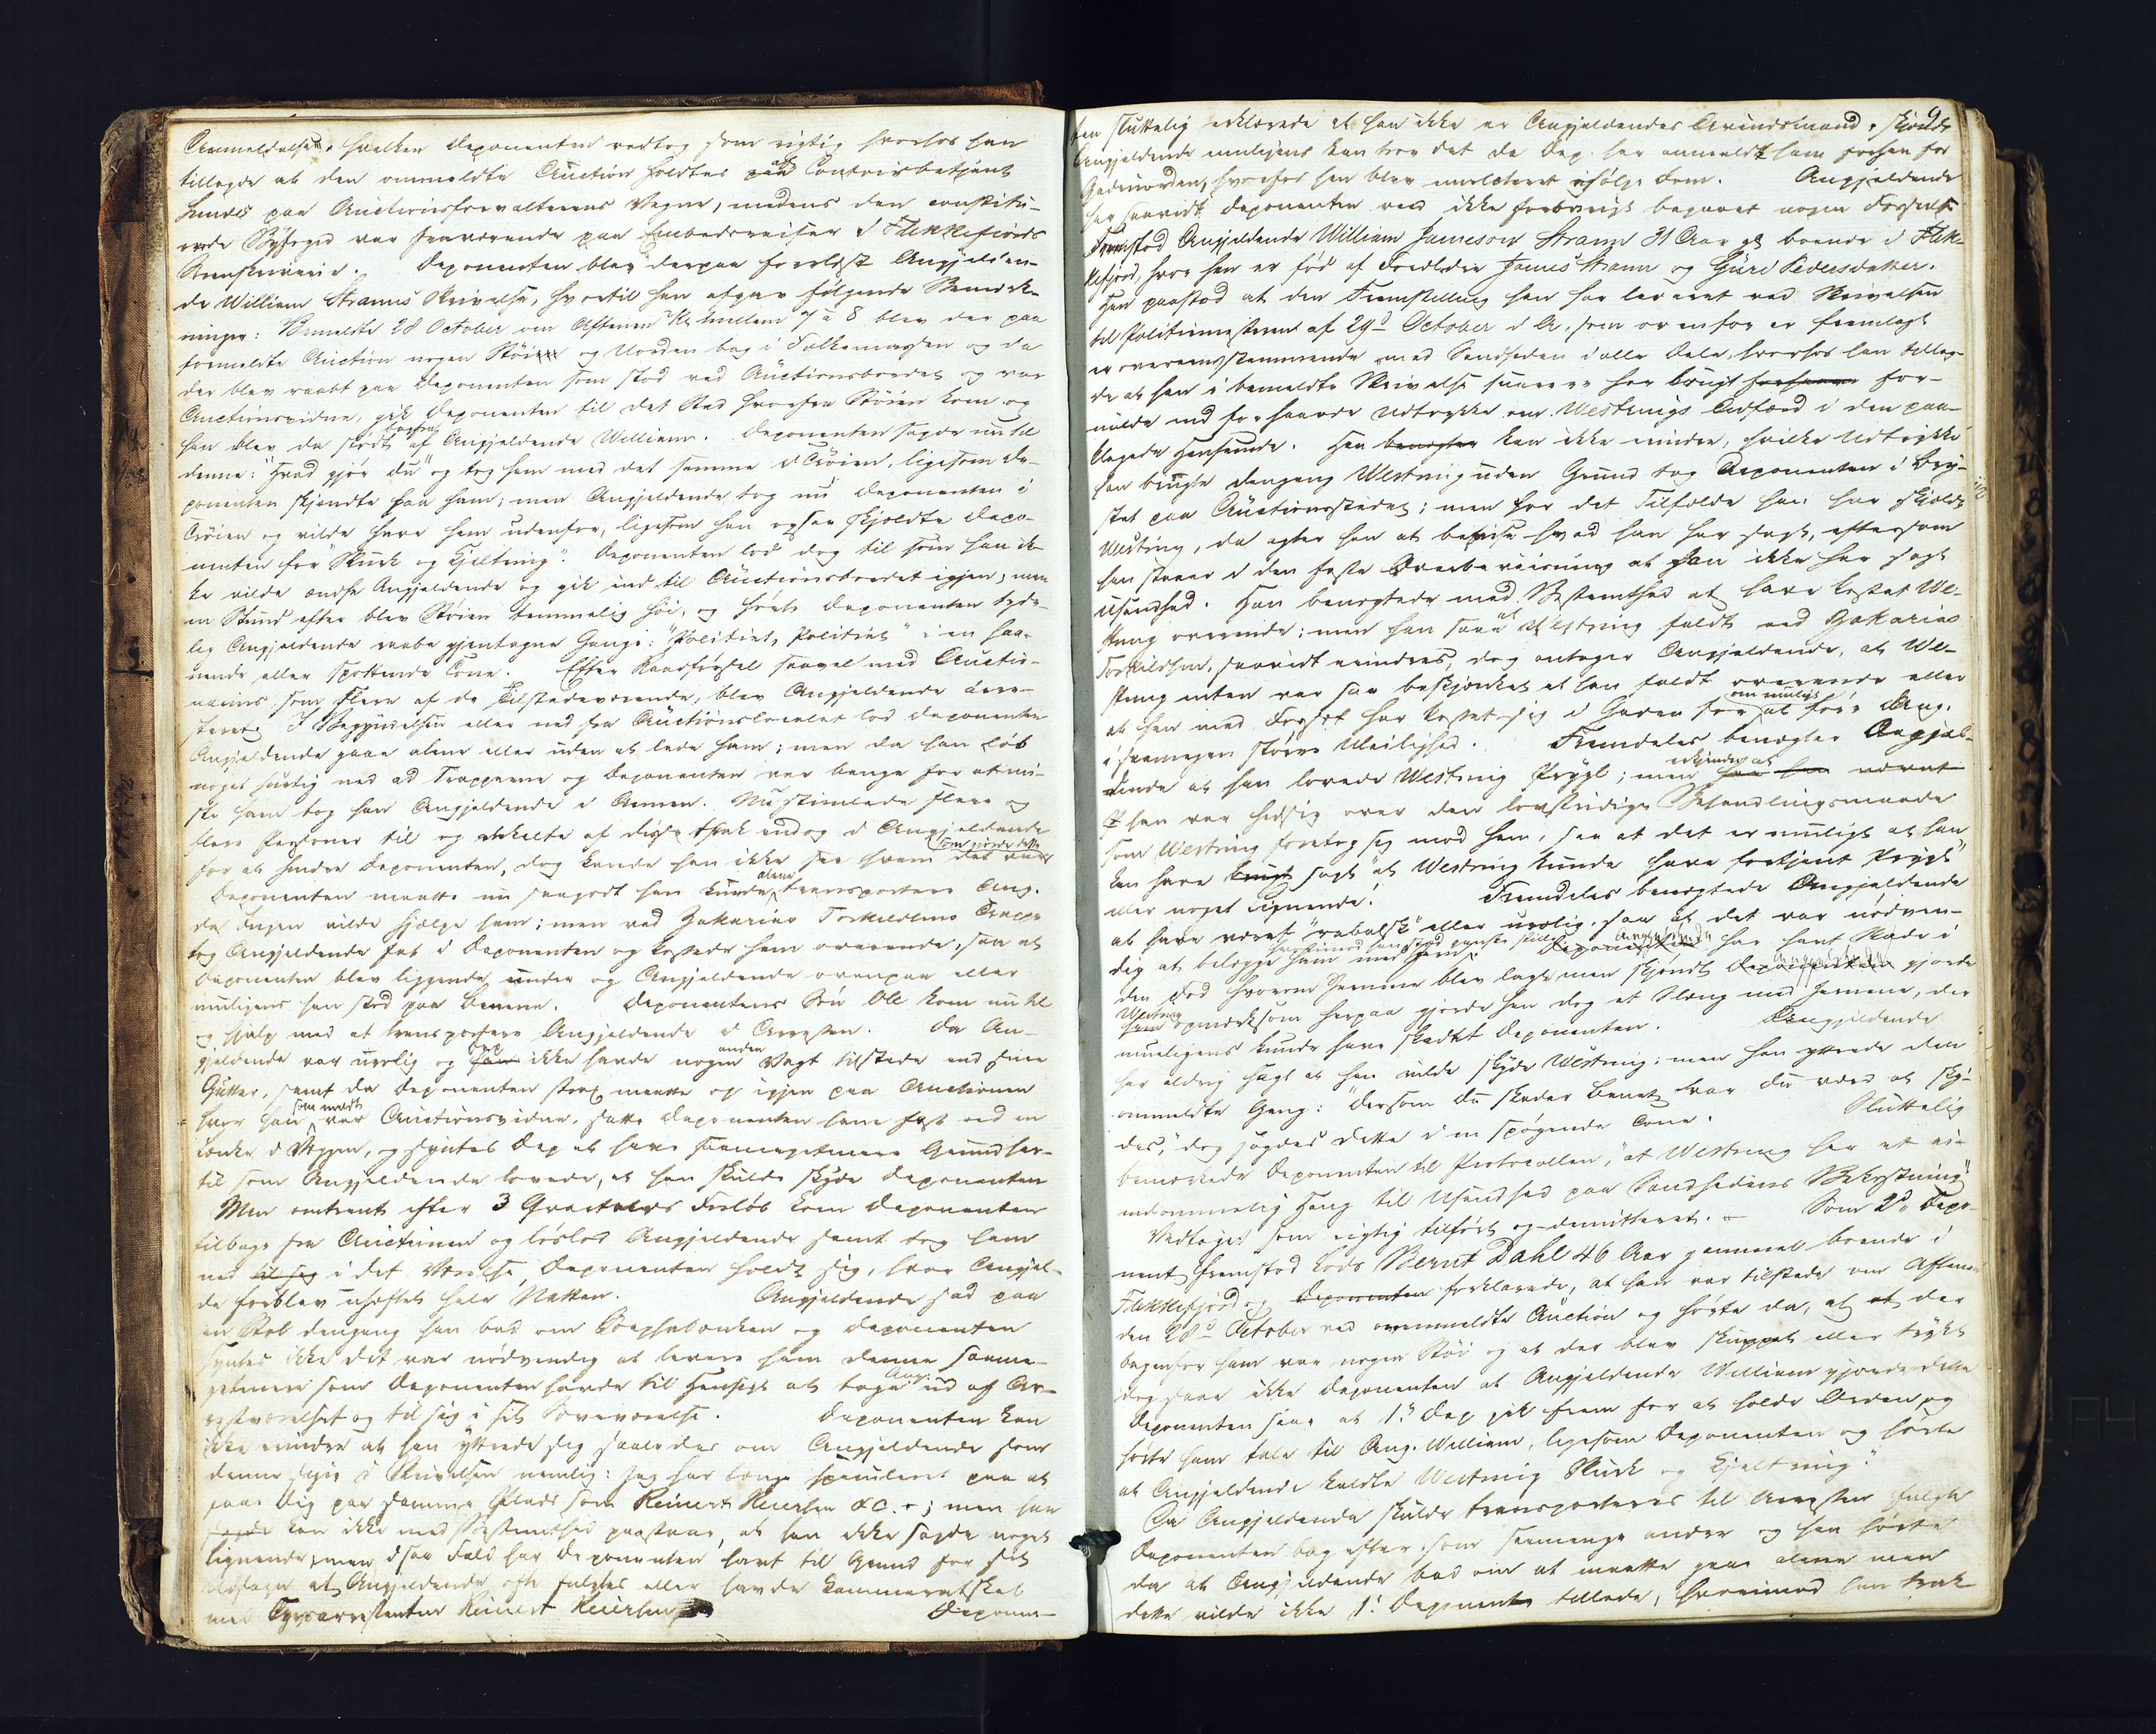 Anmeldelsen, hvilken Deponenten vedtog som rigtig hvorhos han
tillagde at den ommeldte Auction holdtes af Contoirbetjent
Lunds paa Auctionsforvalterens Vegne, medens den constitu-
erede Byfoged var fraværende paa Embedsreiser i Flekkefjords
Sorenskriveri. Deponenten blev derpaa forelæst Angjælden-
de William Stranns Skrivelse, hvortil han afgav følgende Bemærk-
ninger: Bemeldte 28 October om Aftenen Kl. mellem 7 a 8 blev der paa
formeldte Auction nogen Støi og Uorden bag i Folkemassen og da
der blev raabt paa Deponenten som stod ved Auctionsbordet og var
Auctionsvidne, gik Deponenten til det Sted hvorfra Støien kom og
han blev da stødt bagfra af Angjældende William. Deponenten sagde nu til
denne: "Hvad gjør du" og tog ham med det samme i Trøien, ligesom De-
ponenten skjændte paa ham; men Angjældende tog nu Deponenten i
Trøien og vilde have ham udenfor, ligesom han ogsaa skjældte Depo-
nenten for "Skurk og Kjeltring". Deponenten lod dog til som han ik-
ke vilde ændse Angjældende og gik ind til Auctionsbordet igjen; men
en Stund efter blev Støien temmelig høi, og hørte Deponenten tyde-
lig Angjældende raabe gjentagne Gange: "Politiet, Politiet" i en haa-
nende eller spottende Tone. Efter Raadførsel saavel med Auctio-
narius som Flere af de Tilstedeværende, blev Angjældende arre-
steret. I Begyndelsen eller ned fra Auctionslocalet lod Deponenten
Angjældende gaae alene eller uden at lede ham; men da han løb
noget hurtig ned ad Trapperne og Deponenten var bange for at mi-
ste ham tog han Angjældende i Armen. Nu stimlede flere og
flere Personer til og enkelte af disse trak endog i Angjældende
for at hindre Deponenten, dog kunde han ikke see hvem det var som gjorde dette
Deponenten maatte nu saagodt han kunde alene transportere Ang.
da Ingen vilde hjælpe ham; men ved Zakarias Torkildsens Trappe
tog Angjældende fat i Deponenten og kastede ham overende, saa at
Deponenten blev liggende under og Angjældende ovenpaa eller
muligens han stod paa Benene. Deponentens Søn Ole kom nu til
og hjalp med at transportere Angjældende i Arresten. Da An-
gjældende var urolig og Dep ikke havde nogen anden Vagt tilstede end sine
Gutter, samt da Deponenten strax maatte op igjen paa Auctionen
hvor han som meldt var Auctionsvidne, satte Deponenten ham fast ved en
Lænke i Væggen, og syntes Dep at have saameget mere Grund her-
til som Angjældende lovede, at han skulde skyde Deponenten
Men omtrent efter 3 Qvarteers Forløb kom Deponenten
tilbage fra Auctionen og løslod Angjældende samt tog ham
ned til sig i det Værelse, Deponenten holdt sig, hvor Angjæl-
de forblev uheftet hele Natten. Angjældende sad paa
en Stol dengang han bad om Træskabænken og Deponenten
syntes ikke det var nødvendig at levere ham denne saame-
get mere som Deponenten havde til Hensigt at tage Ang. ud af Ar-
restværelset og til sig i sit Soveværelse. Deponenten kan
ikke mindes at han yttrede sig saaledes om Angjældende som
denne siger i Skrivelsen nemlig: Jeg har længe speculeret paa at
faae Dig paa samme Plads som Reinert Reiersen &c.; men han
kan ikke med Bestemthed paastaae, at han ikke sagde noget
lignende, men i saa Fald har Deponenten havt til Grund for sit
Udsagn at Angjældende ofte fulgtes eller havde Kammeratskab
med Tyvsarrestanten Reinert Reiersen Deponen-
9
ten sluttelig erklærede at han ikke er Angjældendes Avindsmand, skjøndt
Angjældende muligens kan troe det da Dep. har anmeldt ham forhen for
Gadeuorden, hvorfor han blev mulcteret ifølge Dom. Angjældende
har saavidt Deponenten ved ikke forøvrigt begaaet nogen Forseelse
Fremstod Angjældende William Jameson Strann 31 Aar gl boende i Flek-
kefjord, hvor han er fød af Forældre James Strann og Guri Pedersdatter.
Han paastod at den Fremstilling han har leveret ved Skrivelsen
til Politimesteren af 29d October d. A. som ovenfor er fremlagt
er overensstemmende med Sandheden i alle Dele, hvorhos han tillag-
de at han i bemeldte Skrivelse snarere har brugt for-
milde end for haarde Udtrykke om Westrings Adfærd i den paa-
klagede Henseende. Han kan ikke mindes, hvilke Udtrykke
han brugte dengang Westring uden Grund tog Deponenten i Bry-
stet paa Auctionsstedet; men for det Tilfælde han har skjældt
Westring, da agter han at bevise hvad han har sagt, eftersom
han staaer i den faste Overbeviisning at han ikke har sagt
Usandhed. Han benegtede med Bestemthed at have kastet We-
string overende; men han saae at Westring faldt ved Zakarias
Torkildsen, saavidt mindes, dog antager Angjældende, at We-
string enten var saa beskjænket at han faldt overende eller
at han med Forsæt har kastet sig i Gaden for om muligt at føre Ang.
i saameget større Uleilighed. Fremdeles benegter Angjæl-
dende at han lovede Westring Prygl; men erkjender at
han var hidsig over den lovstridige Behandlingsmaade
som Westring foretog sig mod ham, saa at det er muligt at han
kan have sagt "at Westring kunde have fortjent Prygl"
eller noget Lignende. Fremdeles benegtede Angjældende
at have været "rabalsk" eller urolig, saa at det var nødven-
dig at belægge ham med Jern, hvorimod han stod ganske stille. Angjældende har havt Skade i
den Fod hvorom Jernene blev lagt, men skjøndt Angjældende gjorde
Westring opmærksom herpaa gjorde han dog et Slæng med Jernene, der
mueligens kunde have skadet Deponenten. Angjældende
har aldrig sagt at han vilde skyde Westring; men han yttrede den
ommeldte Gang: "Dersom du skader Benet var Du værd at sky-
des," dog sagdes dette i en spøgende Tone. Sluttelig
bemærkede Deponenten til Protocollen, "at Westring har et ei-
endommelig Hang til Usandhed paa Sandhedens Bekostning"
Vedtaget som rigtig tilført og dimitteret. - Som 2d Depo-
nent fremstod Lods Bernt Dahl 46 Aar gammel boende i
Flekkefjord og forklarede, at han var tilstede om Aftenen
den 28d October ved ovenmeldte Auction og hørte da, at der
bagenfor ham var nogen Støi og at der blev skuppet eller trykt
dog saae ikke Deponenten at Angjældende William gjorde dette
Deponenten saae at 1ste Dep gik frem for at holde Orden og
hørte ham tale til Ang. William, ligesom Deponenten og hørte
at Angjældende kaldte Westring Skurk og Kjeltring".
Da Angjældende skulde transporteres til Arresten fulgte
Deponenten bag efter som saamange andre og han hørte
da at Angjældende bad om at maatte gaae alene men
dette vilde ikke 1ste Deponent tillade, hvorimod han trak